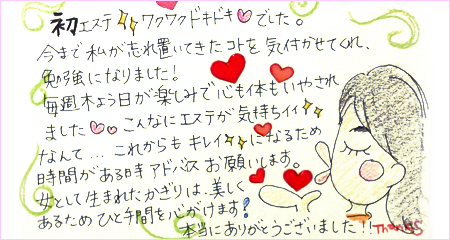 初エステ✨ワクワクドキドキ♡でした。
今まで私が忘れ置いてきたコトを気付かせてくれ、
勉強になりました!
毎週木よう日が楽しみで心も体もいやされ
ました♡♡こんなにエステが気持ちイイ✨
なんて…これからもキレイ✨になるため
時間がある時アドバイスお願いします。
女として生まれたかぎりは、美しく
あるためひと手間を心がけます!
本当にありがとうございました!!
Thanks